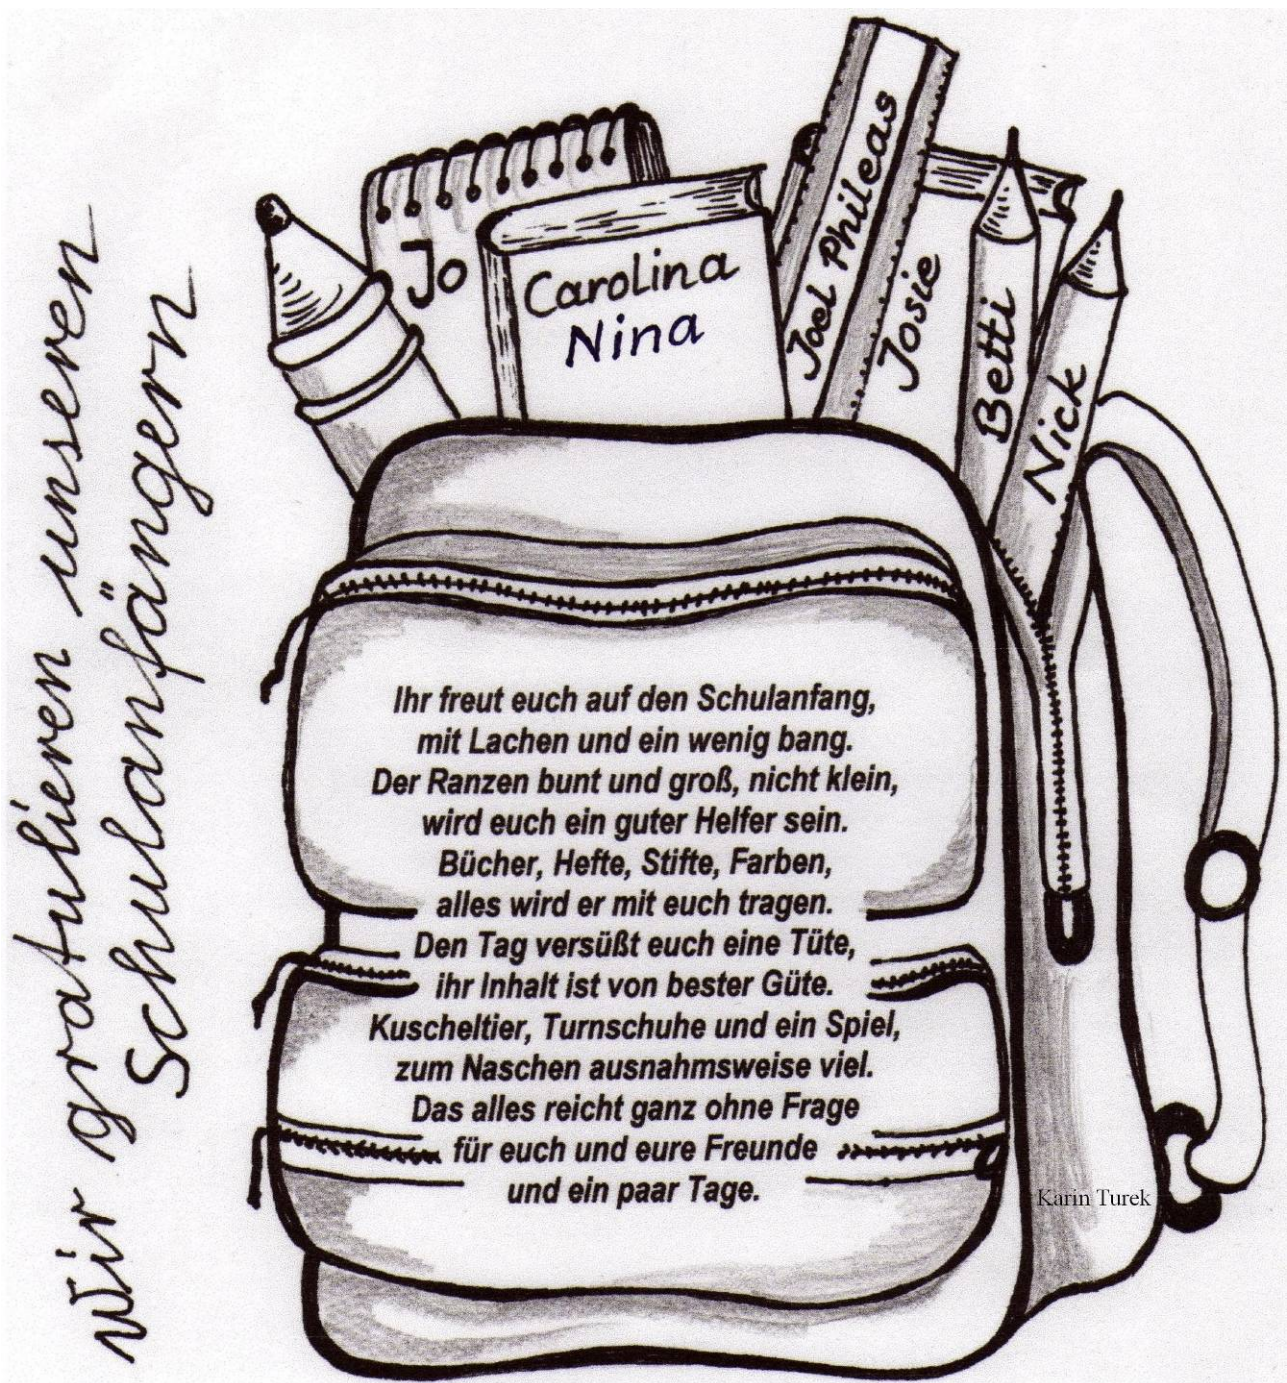 Wir gratulieren unseren
Schulanfängern
Jo
Carolina
Nina
Joel Phileas
Josie
Betti
Nick
Ihr freut euch auf den Schulanfang,
mit Lachen und ein wenig bang.
Der Ranzen bunt und groß, nicht klein,
wird euch ein guter Helfer sein.
Bücher, Hefte, Stifte, Farben,
alles wird er mit euch tragen.
Den Tag versüßt euch eine Tüte,
ihr Inhalt ist von bester Güte.
Kuscheltier, Turnschuhe und ein Spiel,
zum Naschen ausnahmsweise viel.
Das alles reicht ganz ohne Frage
für euch und eure Freunde
und ein paar Tage.
Karin Turek